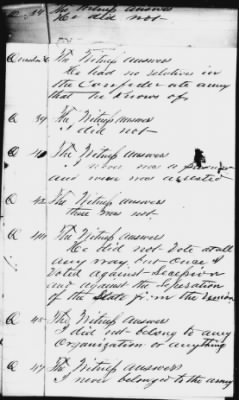 Q 34 The Witness answers
He did not
Question 36 The Witness answers
He had no relatives in
the Confederate army
that he knows of
Q 39 The Witness answers
I did not
Q 40 The Witness answers
I never was a
and never was arested
Q 42 The Witness answers
there was not
Q 44 The Witness answers
He did not Vote at all
any way, but Once &
Voted against Secession
and against the Seperation
of the State from the Union
Q 45 The Witness answers
I did not belong to any
Organization or anything
Q 47 The Witness answers
I never belonged to the army